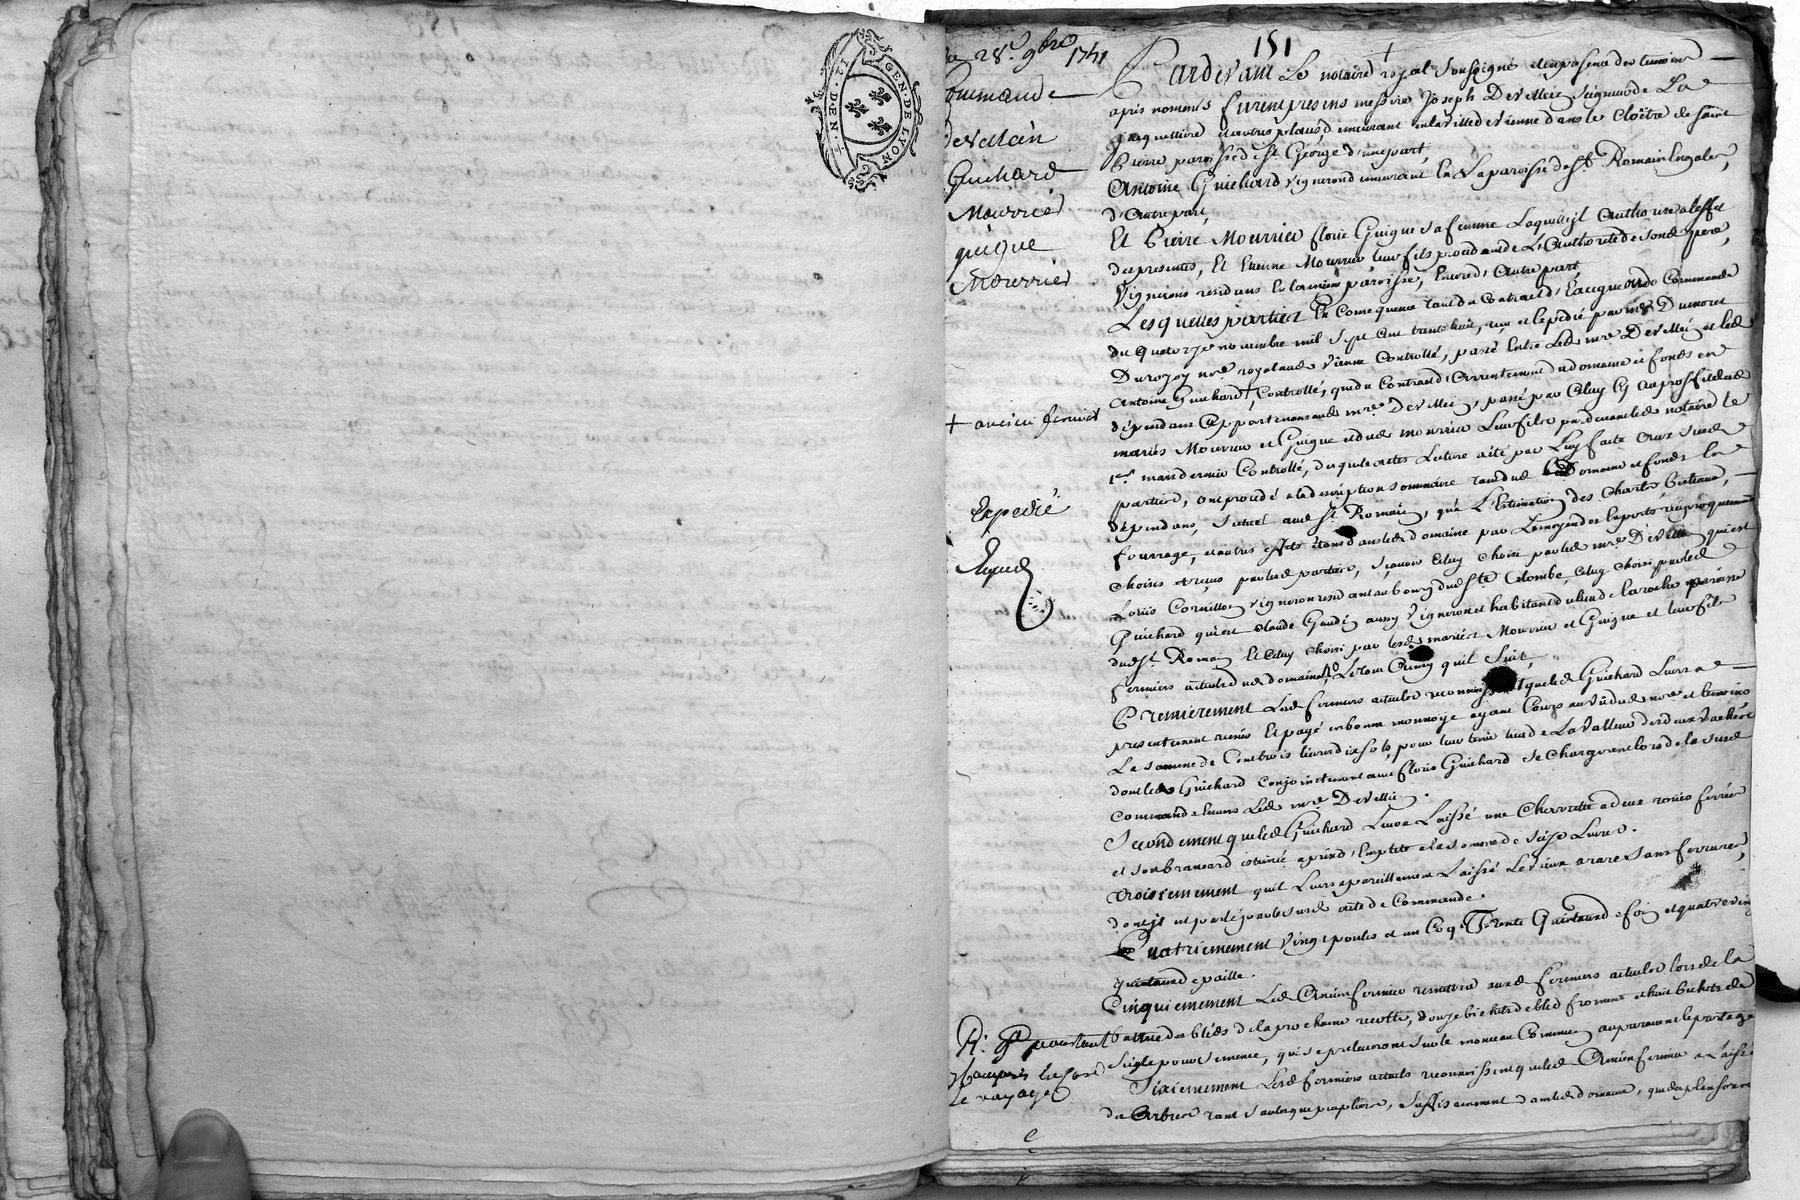 GEN. DE LYON
2. D. EN. 4.
151
du 28e. 9bre 1741
Commande
de Vellein
Guichard
Mourrier
guigue
Mourrier
+ ancien fermier
Expedié
Expedié
Pardevant Le notaire royal soussigné et en presence des temoins
apres nommés furent presens messire Joseph De Vellein seigneur de La
Jacquettiere et autres places demeurant en la ville de Vienne dans le Cloitre de Saint
Pierre paroisse de St. George d'une part,
Antoine Guichard vigneron demeurant en La paroisse de St. Romain en galer
d'Autre part,
Et Pierre Mourrier florie Guigue sa femme Laquelle jl Authorise a leffet
des presentes, Et Etienne Mourrier leur fils procedant de L'authorité de sond. pere,
Vignerons residans en la meme paroisse, Encore d'Autre part,
Lesquelles parties En Consequence tant du Contract d'
du quatorze novembre mil sept cent trente huit, reçu et expedié par me Duinoret
Durozoy nre royal aud. Vienne Controllé, passé Entre Led. mre De Vellein et led.
Antoine Guichard + Controllé, que du Contract d'Arrentement du domaine et fonds en
dépendans Appartenans aud. mre De Vellein, passé par Celuy Cy au proffit desd.
mariés Mourrier et Guigue et dud. mourrier Leur fils pardevant led. notaire le
1er. mars dernier Controllé, desquels actes Lecture a été par Luy faite aux susd.
parties, ont procedé a la description sommaire tant dud. Domaine et fonds en
dépendans, situés aud. St. Romain, qu'a L'Estimation des Charté bestiaux,
fourrage, et autres effets étans dans led. domaine par Le moyen des Experts reciproquement
choisis et reçus par lesd. parties, sçavoir Celuy choisi par led. mre De Vellein qui est
Loüis Cornillon vigneron residant au bourg de Ste Colombe, Celuy choisi par led.
Guichard qui est Claude Gaudin aussy Vigneron et habitant du lieu de la roche paroisse
dud. St. Romain Et Celuy choisi par lesd. mariés Mourrier et Guigue et leur fils
fermiers actuels dud. domaine, Le tout Ainsy qu'il suit,
Premierement Lesd. fermiers actuels reconnoissent que led. Guichard Leur a
presentement remis Et payé en bonne monnoye ayant Cours au vû dud. nre. et temoins
La somme de Cent trois livres dix sols, pour leur tenir lieu de La Valleur des deux vaches
dont led. Guichard conjointement avec florie Guichard se chargerent lors de la susd.
commande Envers Led. mre De Vellein.
Secondement que led. Guichard Leur a Laissé une Charrette a deux roües ferrée
et son brancard estimée a prix d'Emplete a la somme de seize Livres.
Troisiemement qu'il Leur a pareillement Laissé Le vieux araire sans ferrures,
dont jl est parlé par le susd. acte de Commande.
Quatriemement vingt poules et un Coq Trente Quintaux de foin et quatre vingt
quintaux de paille.
Cinquiemement Led. Ancien fermier remettra auxd. fermiers actuels lors de la
battue des blés de la prochaine recolte, douze bichets de bled froment et huit bichets de
seigle pour semence, qui se preleveront sur le monceau Commun auparavant le partage
Sixiemement Lesd. fermiers actuels reconnoissent que led. Ancien fermier a Laissé